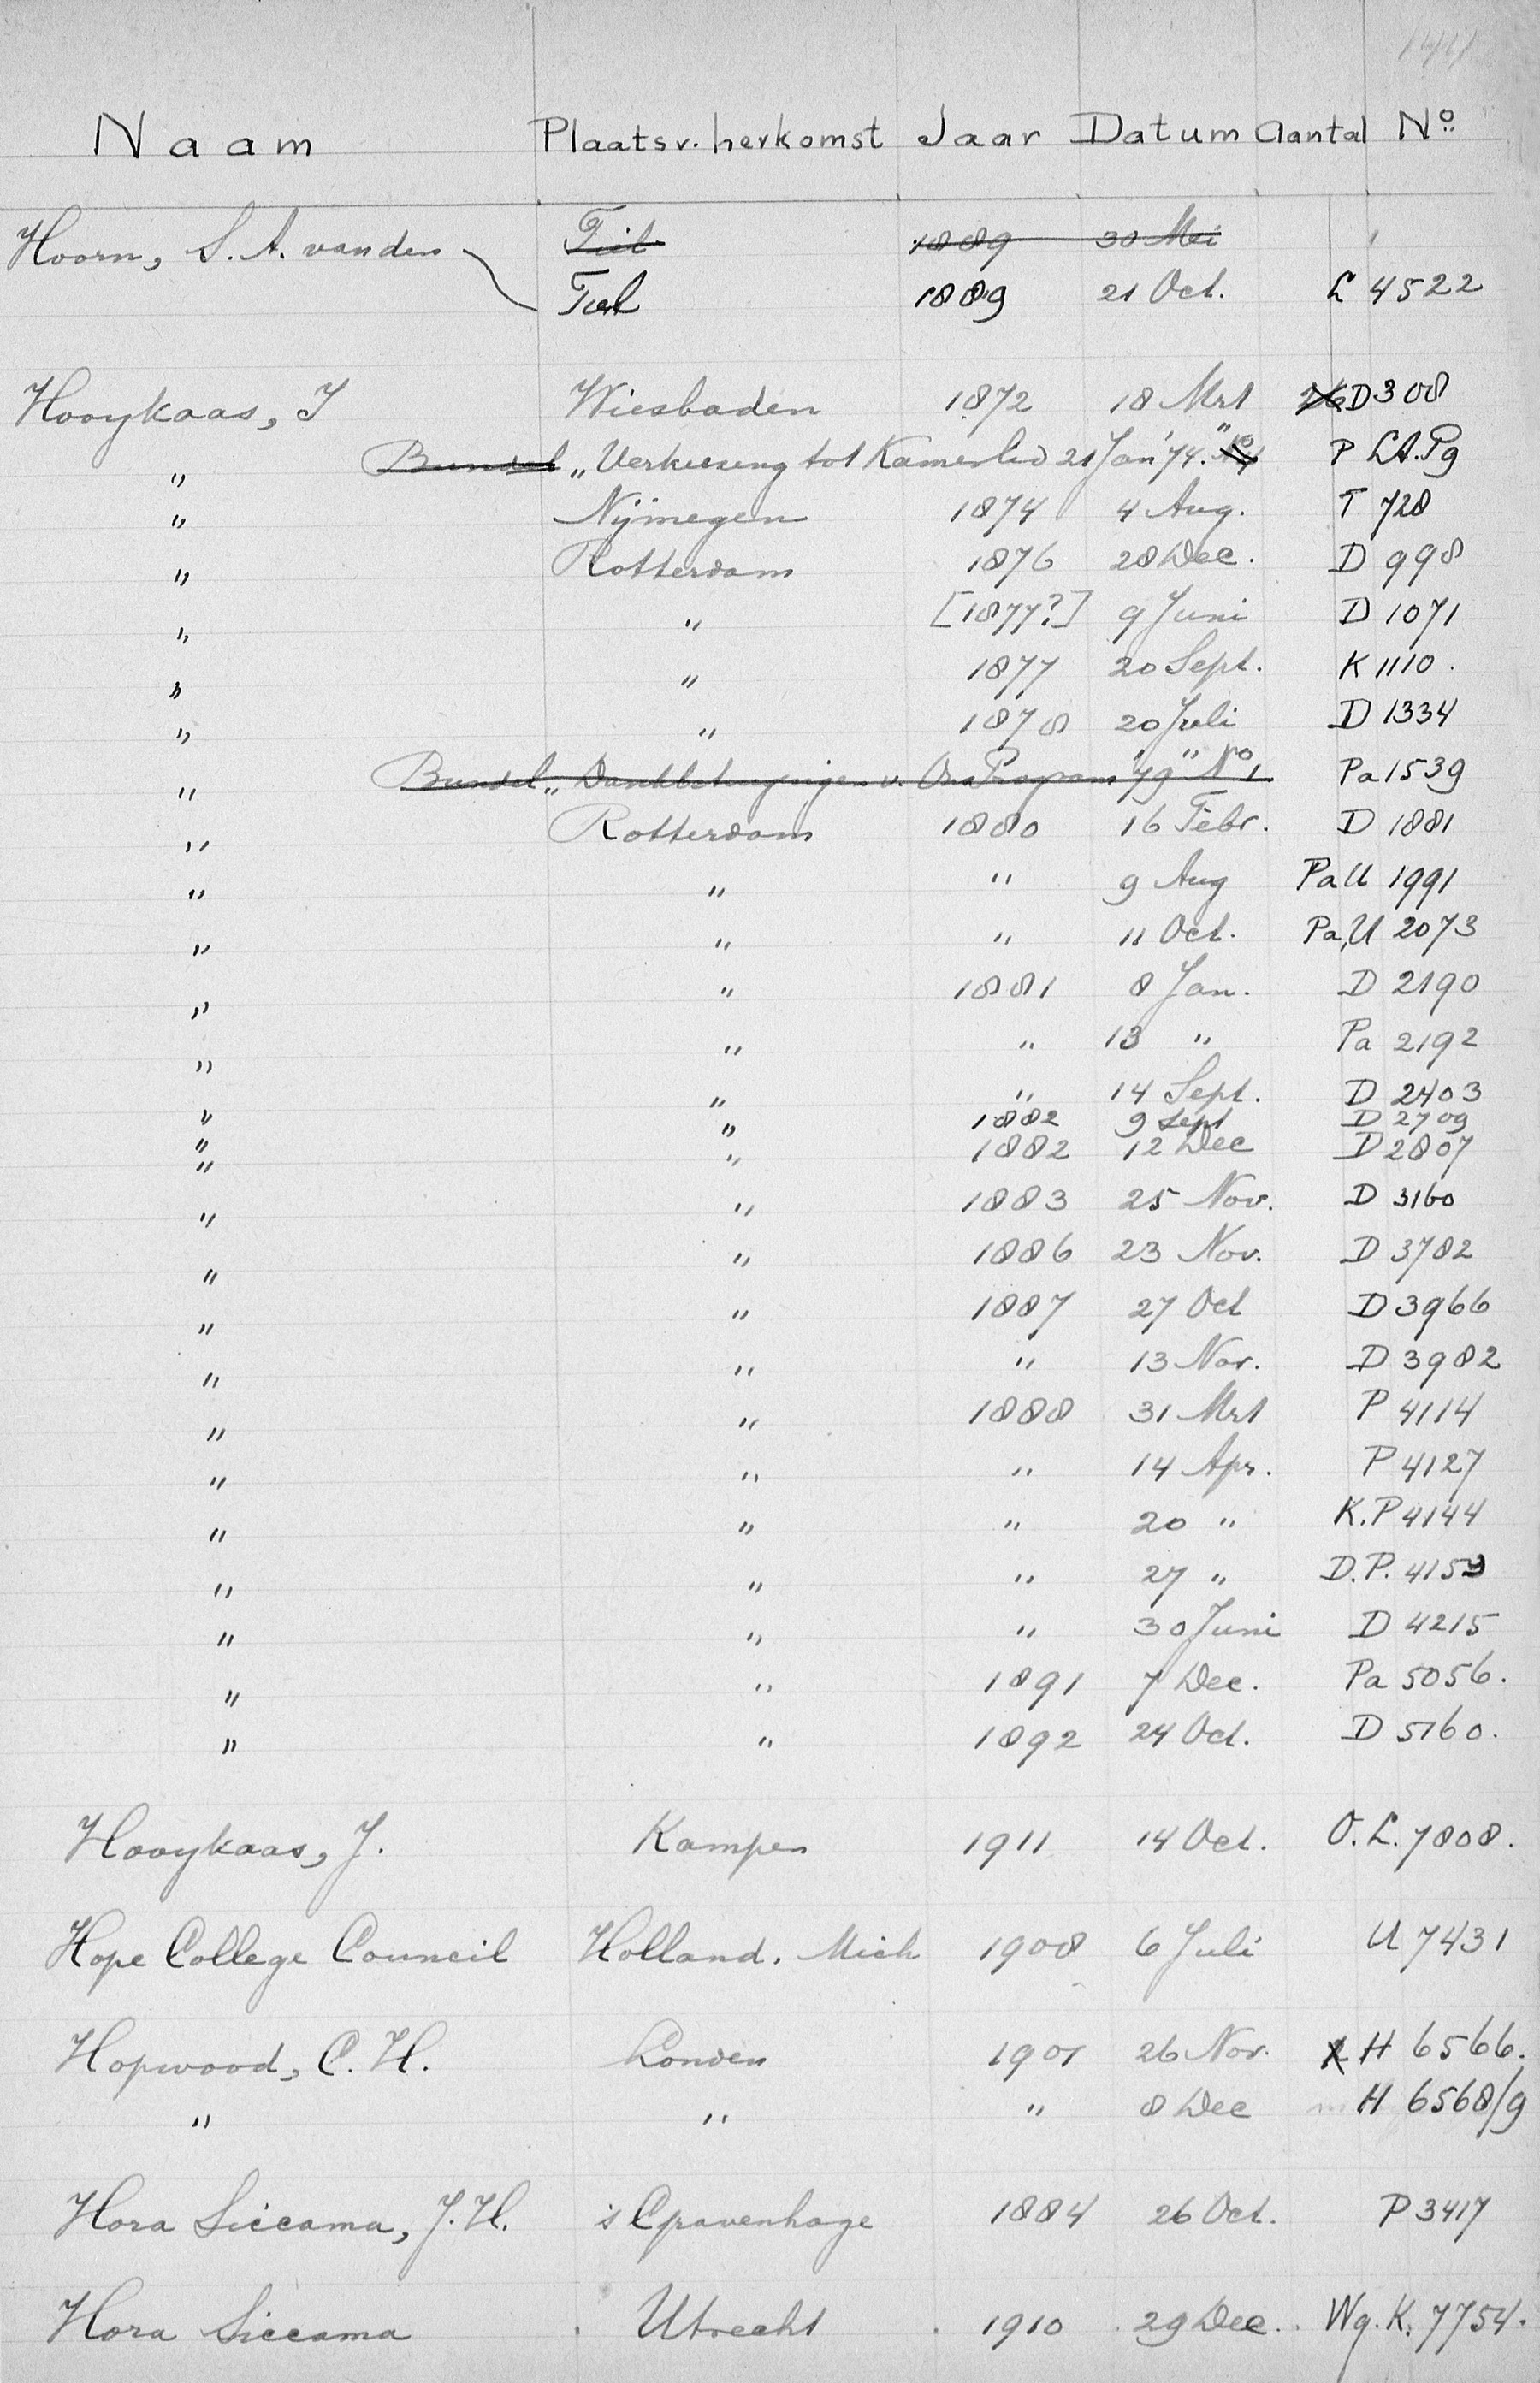 Naam Plaats v. herkomst Jaar Datum Aantal No
Hoorn, S. A. van den Tiel 1889 30 Mei
Tiel 1889 21 Oct. L 4522
Hooykaas, J Wiesbaden 1872 18 Mrt D 308
" Bundel „Verkiezing tot Kamerlid 21 Jan '74." P LA. Pg
" Nijmegen 1874 4 Aug. T 728
" Rotterdam 1876 28 Dec. D 998
" " [1877?] 9 Juni D 1071
" " 1877 20 Sept. K 1110.
" " 1878 20 Juli D 1334
" Bundel „Dankbetuigingen v. Ons Program '79" No 1 Pa 1539
" Rotterdam 1880 16 Febr. D 1881
" " " 9 Aug Pa U 1991
" " " 11 Oct. Pa, U 2073
" " 1881 8 Jan. D 2190
" " " 13 " Pa 2192
" " " 14 Sept. D 2403
" " 1882 9 Sept D 2709
" " 1882 12 Dec D 2807
" " 1883 25 Nov. D 3160
" " 1886 23 Nov. D 3782
" " 1887 27 Oct D 3966
" " " 13 Nov. D 3982
" " 1888 31 Mrt P 4114
" " " 14 Apr. P 4127
" " " 20 " K. P 4144
" " " 27 " D. P. 4159
" " " 30 Juni D 4215
" " 1891 7 Dec. Pa 5056.
" " 1892 24 Oct. D 5160.
Hooykaas, J. Kampen 1911 14 Oct. O. L. 7808.
Hope College Council Holland. Mich 1908 6 Juli U 7431
Hopwood, C. H. Londen 1901 26 Nov. H 6566.
" " " 8 Dec H 6568/9
Hora Siccama, J. H. 's Gravenhage 1884 26 Oct. P 3417
Hora Siccama Utrecht 1910 29 Dec. Wg. K. 7754.